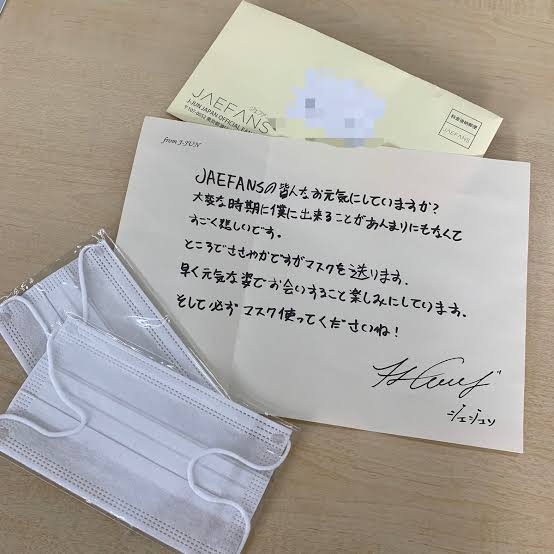 ジェファンズ
JAEFANS
J-JUN JAPAN OFFICIAL FAN
〒107-0052 東京都港区
料金後納郵便
JAEFANS
from J-JUN
JAEFANSの皆んなお元気にしていますか?
大変な時期に僕に出来ることがあんまりにもなくて
すごく悲しいです。
ところでささやかですがマスクを送ります.
早く元気な姿でお会いすること楽しみにしています。
そして必ずマスク使ってくださいね!
ジェジュン